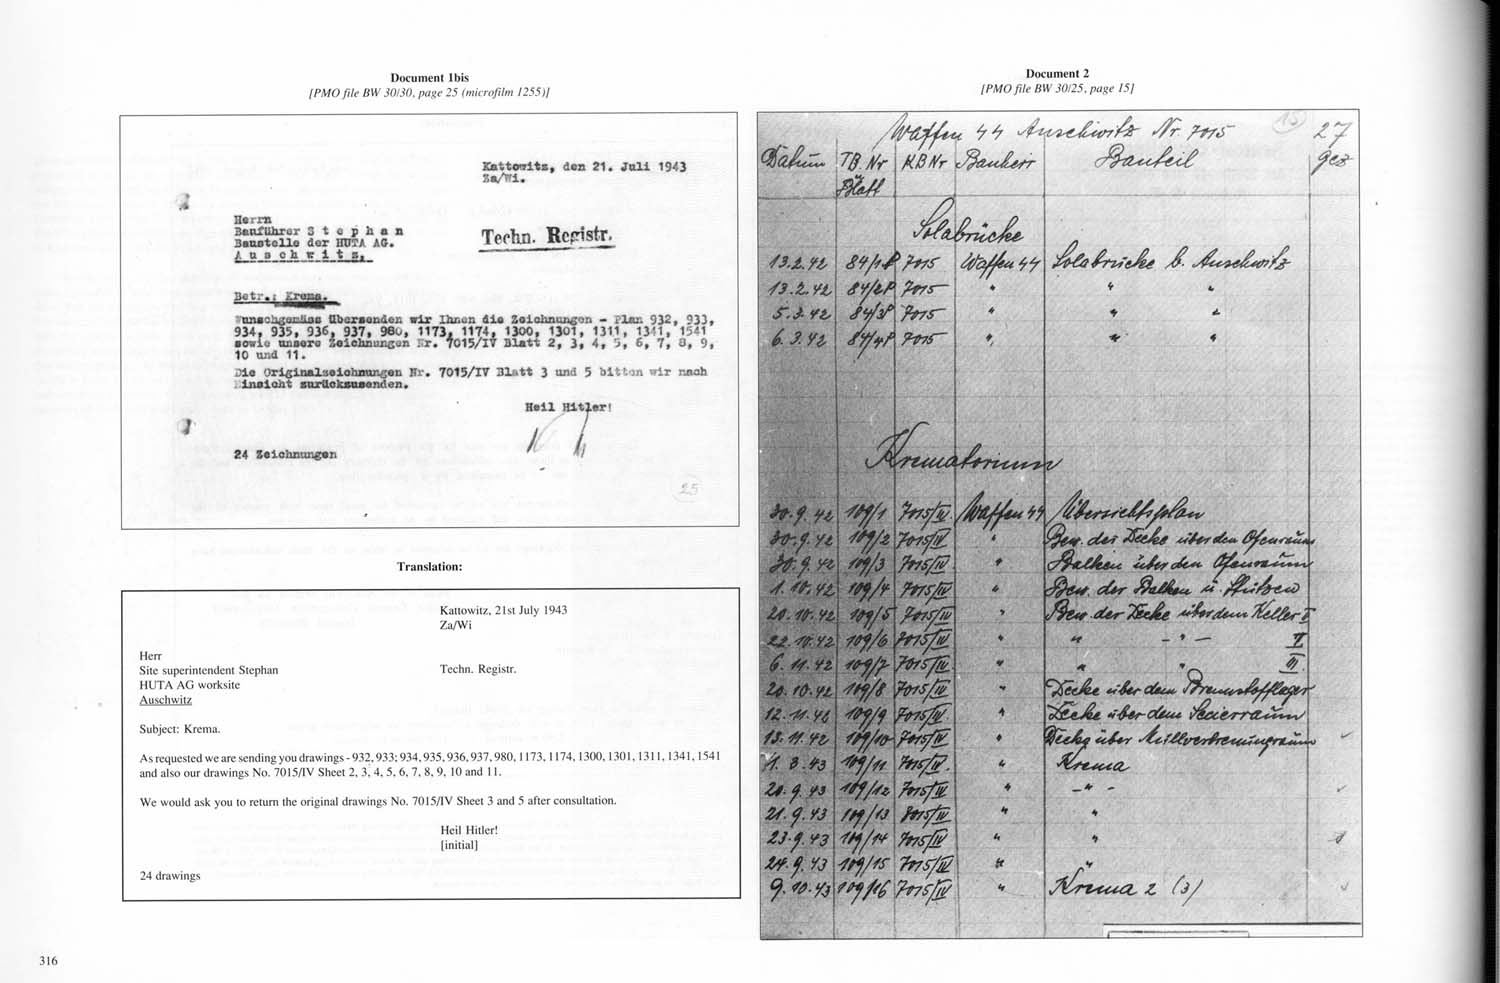 Document 1bis
[PMO file BW 30/30, page 25 (microfilm 1255)]
Kattowitz, den 21. Juli 1943
Za/Wi.
Herrn
Bauführer S t e p h a n
Baustelle der HUTA AG.
A u s c h w i t z.
Techn. Registr.
Betr.: Krema.
Wunschgemäss übersenden wir Ihnen die Zeichnungen - Plan 932, 933,
934, 935, 936, 937, 980, 1173, 1174, 1300, 1301, 1311, 1341, 1541
sowie unsere Zeichnungen Nr. 7015/IV Blatt 2, 3, 4, 5, 6, 7, 8, 9,
10 und 11.
Die Originalzeichnungen Nr. 7015/IV Blatt 3 und 5 bitten wir nach
Einsicht zurückzusenden.
Heil Hitler!
24 Zeichnungen
25
Translation:
Kattowitz, 21st July 1943
Za/Wi
Herr
Site superintendent Stephan
HUTA AG worksite
Auschwitz
Techn. Registr.
Subject: Krema.
As requested we are sending you drawings - 932, 933; 934, 935, 936, 937, 980, 1173, 1174, 1300, 1301, 1311, 1341, 1541
and also our drawings No. 7015/IV Sheet 2, 3, 4, 5, 6, 7, 8, 9, 10 and 11.
We would ask you to return the original drawings No. 7015/IV Sheet 3 and 5 after consultation.
Heil Hitler!
[initial]
24 drawings
316
Document 2
[PMO file BW 30/25, page 15]
Waffen SS Auschwitz Nr. 7015 15 27
Datum TB. Nr Blatt K.B.Nr Bauherr Bauteil gez
Solabrücke
13.2.42 84/1P 7015 Waffen SS Solabrücke b. Auschwitz
13.2.42 84/2P 7015 " " "
5.3.42 84/3P 7015 " " "
6.3.42 84/4P 7015 " " "
Krematorium
30.9.42 109/1 7015/IV Waffen SS Übersichtsplan
30.9.42 109/2 7015/IV " Bew. der Decke über den Ofenraum
30.9.42 109/3 7015/IV " Balken über den Ofenraum
1.10.42 109/4 7015/IV " Bew. der Balken u. Stützen
20.10.42 109/5 7015/IV " Bew. der Decke über dem Keller I
22.10.42 109/6 7015/IV " " - " - II
6.11.42 109/7 7015/IV " " " III.
20.10.42 109/8 7015/IV " Decke über dem Brennstofflager
12.11.42 109/9 7015/IV " Decke über dem Secierraum
13.11.42 109/10 7015/IV " Decke über Müllverbrennungsraum
11.3.43 109/11 7015/IV " Krema
20.9.43 109/12 7015/IV " - " -
21.9.43 109/13 7015/IV " "
23.9.43 109/14 7015/IV " "
24.9.43 109/15 7015/IV " "
9.10.43 109/16 7015/IV " Krema 2 (3)